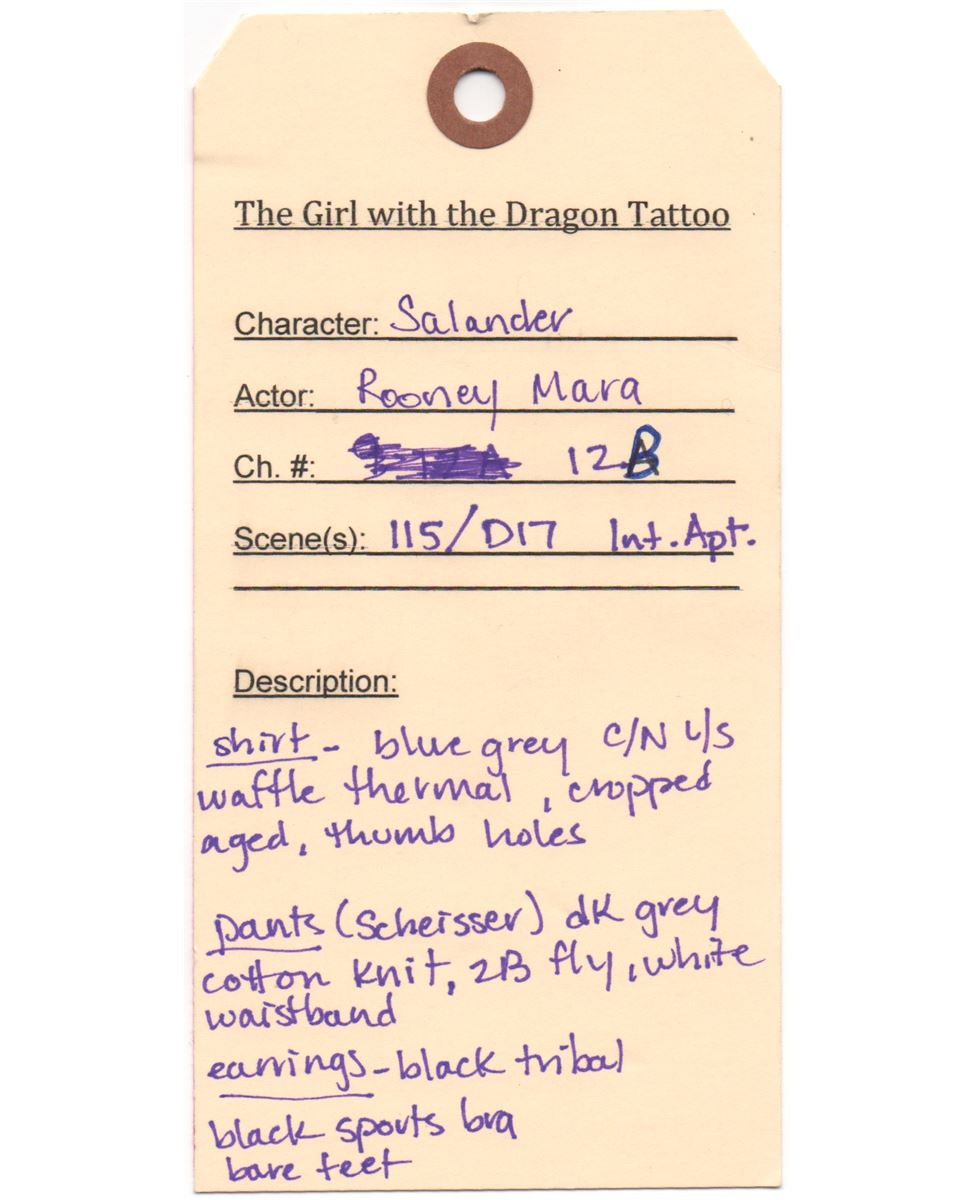 The Girl with the Dragon Tattoo
Character: Salander
Actor: Rooney Mara
Ch. #: 12B
Scene(s): 115/D17 Int. Apt.
Description:
shirt - blue grey C/N L/S
waffle thermal, cropped
aged, thumb holes
pants (Scheisser) dk grey
cotton knit, 2B fly, white
waistband
earrings - black tribal
black sports bra
bare feet